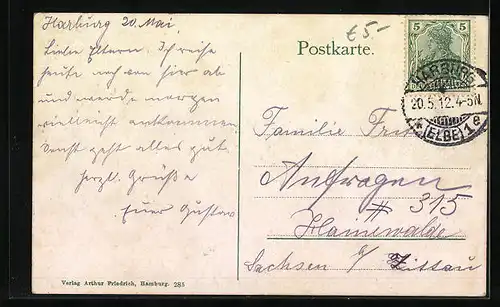 Harburg 20. Mai.
Liebe Eltern. Ich reise
heute noch von hier ab
und werde morgen
vielleicht ankommen
Sonst geht alles gut.
herzl. Grüße
Euer Gustav
Verlag Arthur Friedrich, Hamburg. 285
£5-
Postkarte.
5 5
HARBURG
20.5.12.4-5N.
(ELBE) 1e
Familie
Anfragen
# 315
Hainewalde
Sachsen b/ Zittau